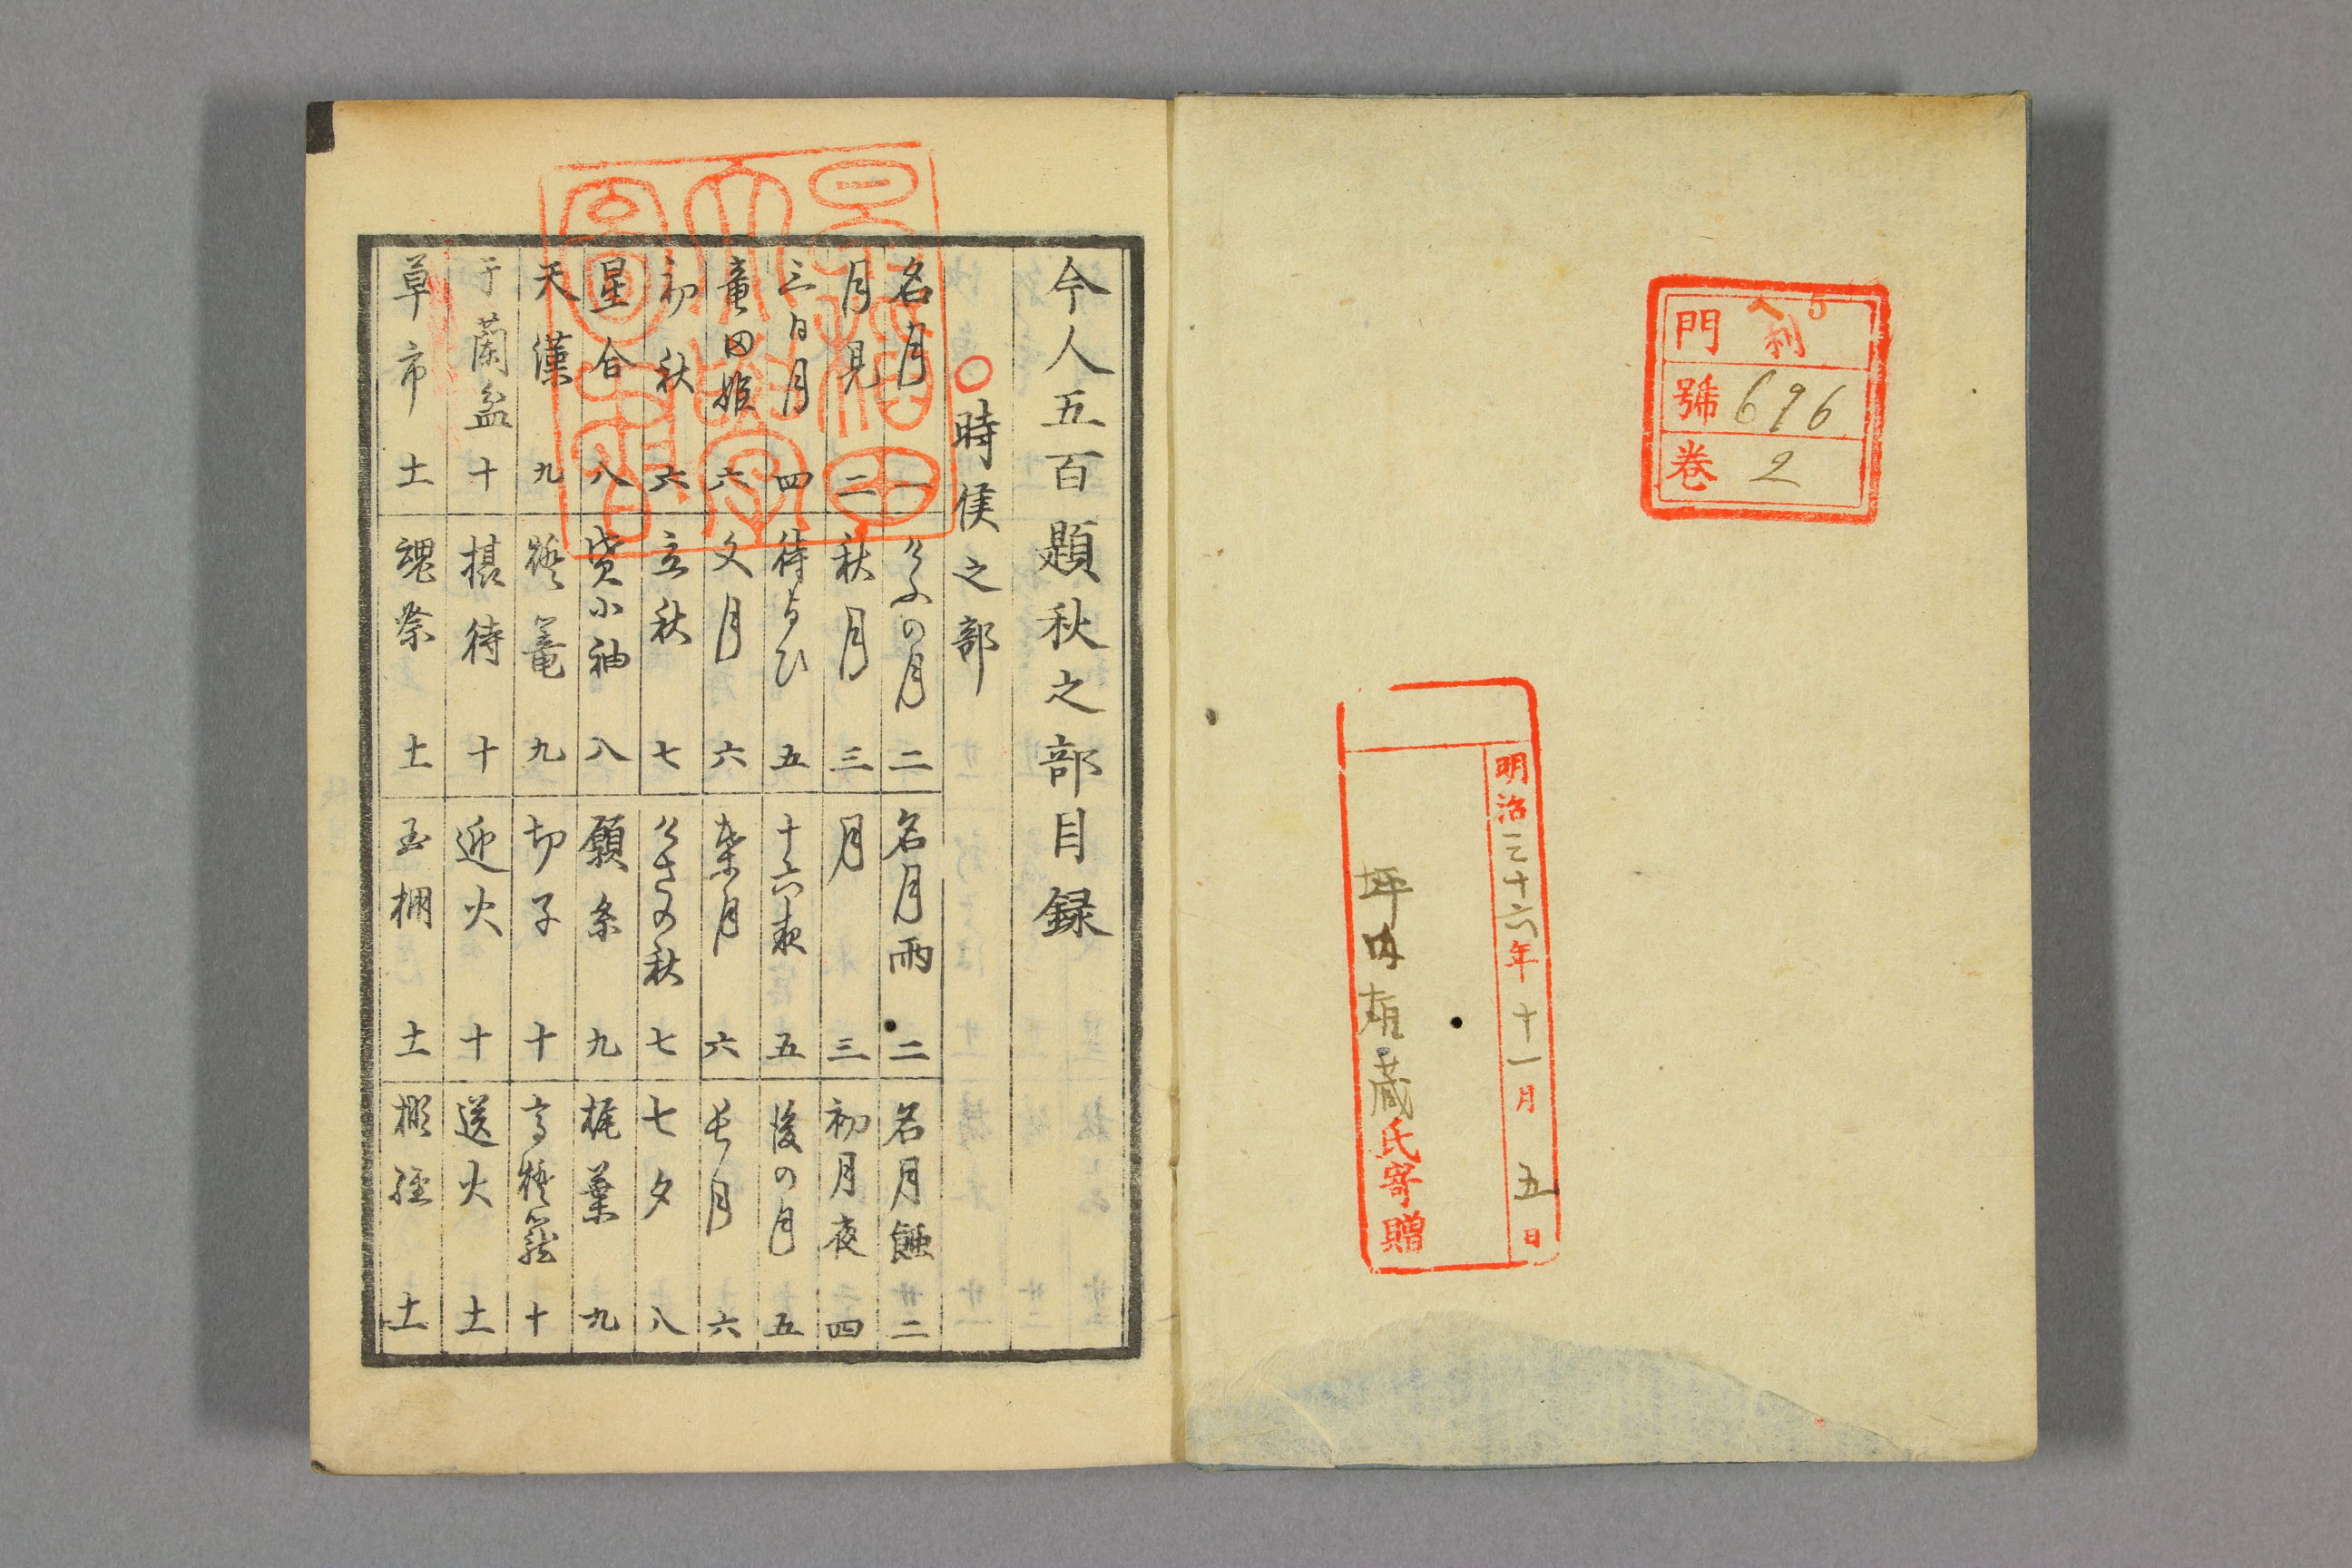 門 ヘ5
利
號 696
卷 2
明治三十六年十一月五日
坪内雄蔵氏寄贈
今人五百題秋之部目録
○時候之部
名月 一 けふの月 二 名月雨 二 名月蝕 二
月見 二 秋月 三 月 三 初月夜 四
三日月 四 待よひ 五 十六夜 五 後の月 五
竜田姫 六 文月 六 葉月 六 長月 六
初秋 六 立秋 七 けさの秋 七 七夕 八
星合 八 貸小袖 八 願糸 九 梶葉 九
天漢 九 燈篭 九 切子 十 高燈籠 十
于蘭盆 十 摂待 十 迎火 十 送火 土
草市 土 魂祭 土 玉棚 土 棚経 土
早稲田大学図書